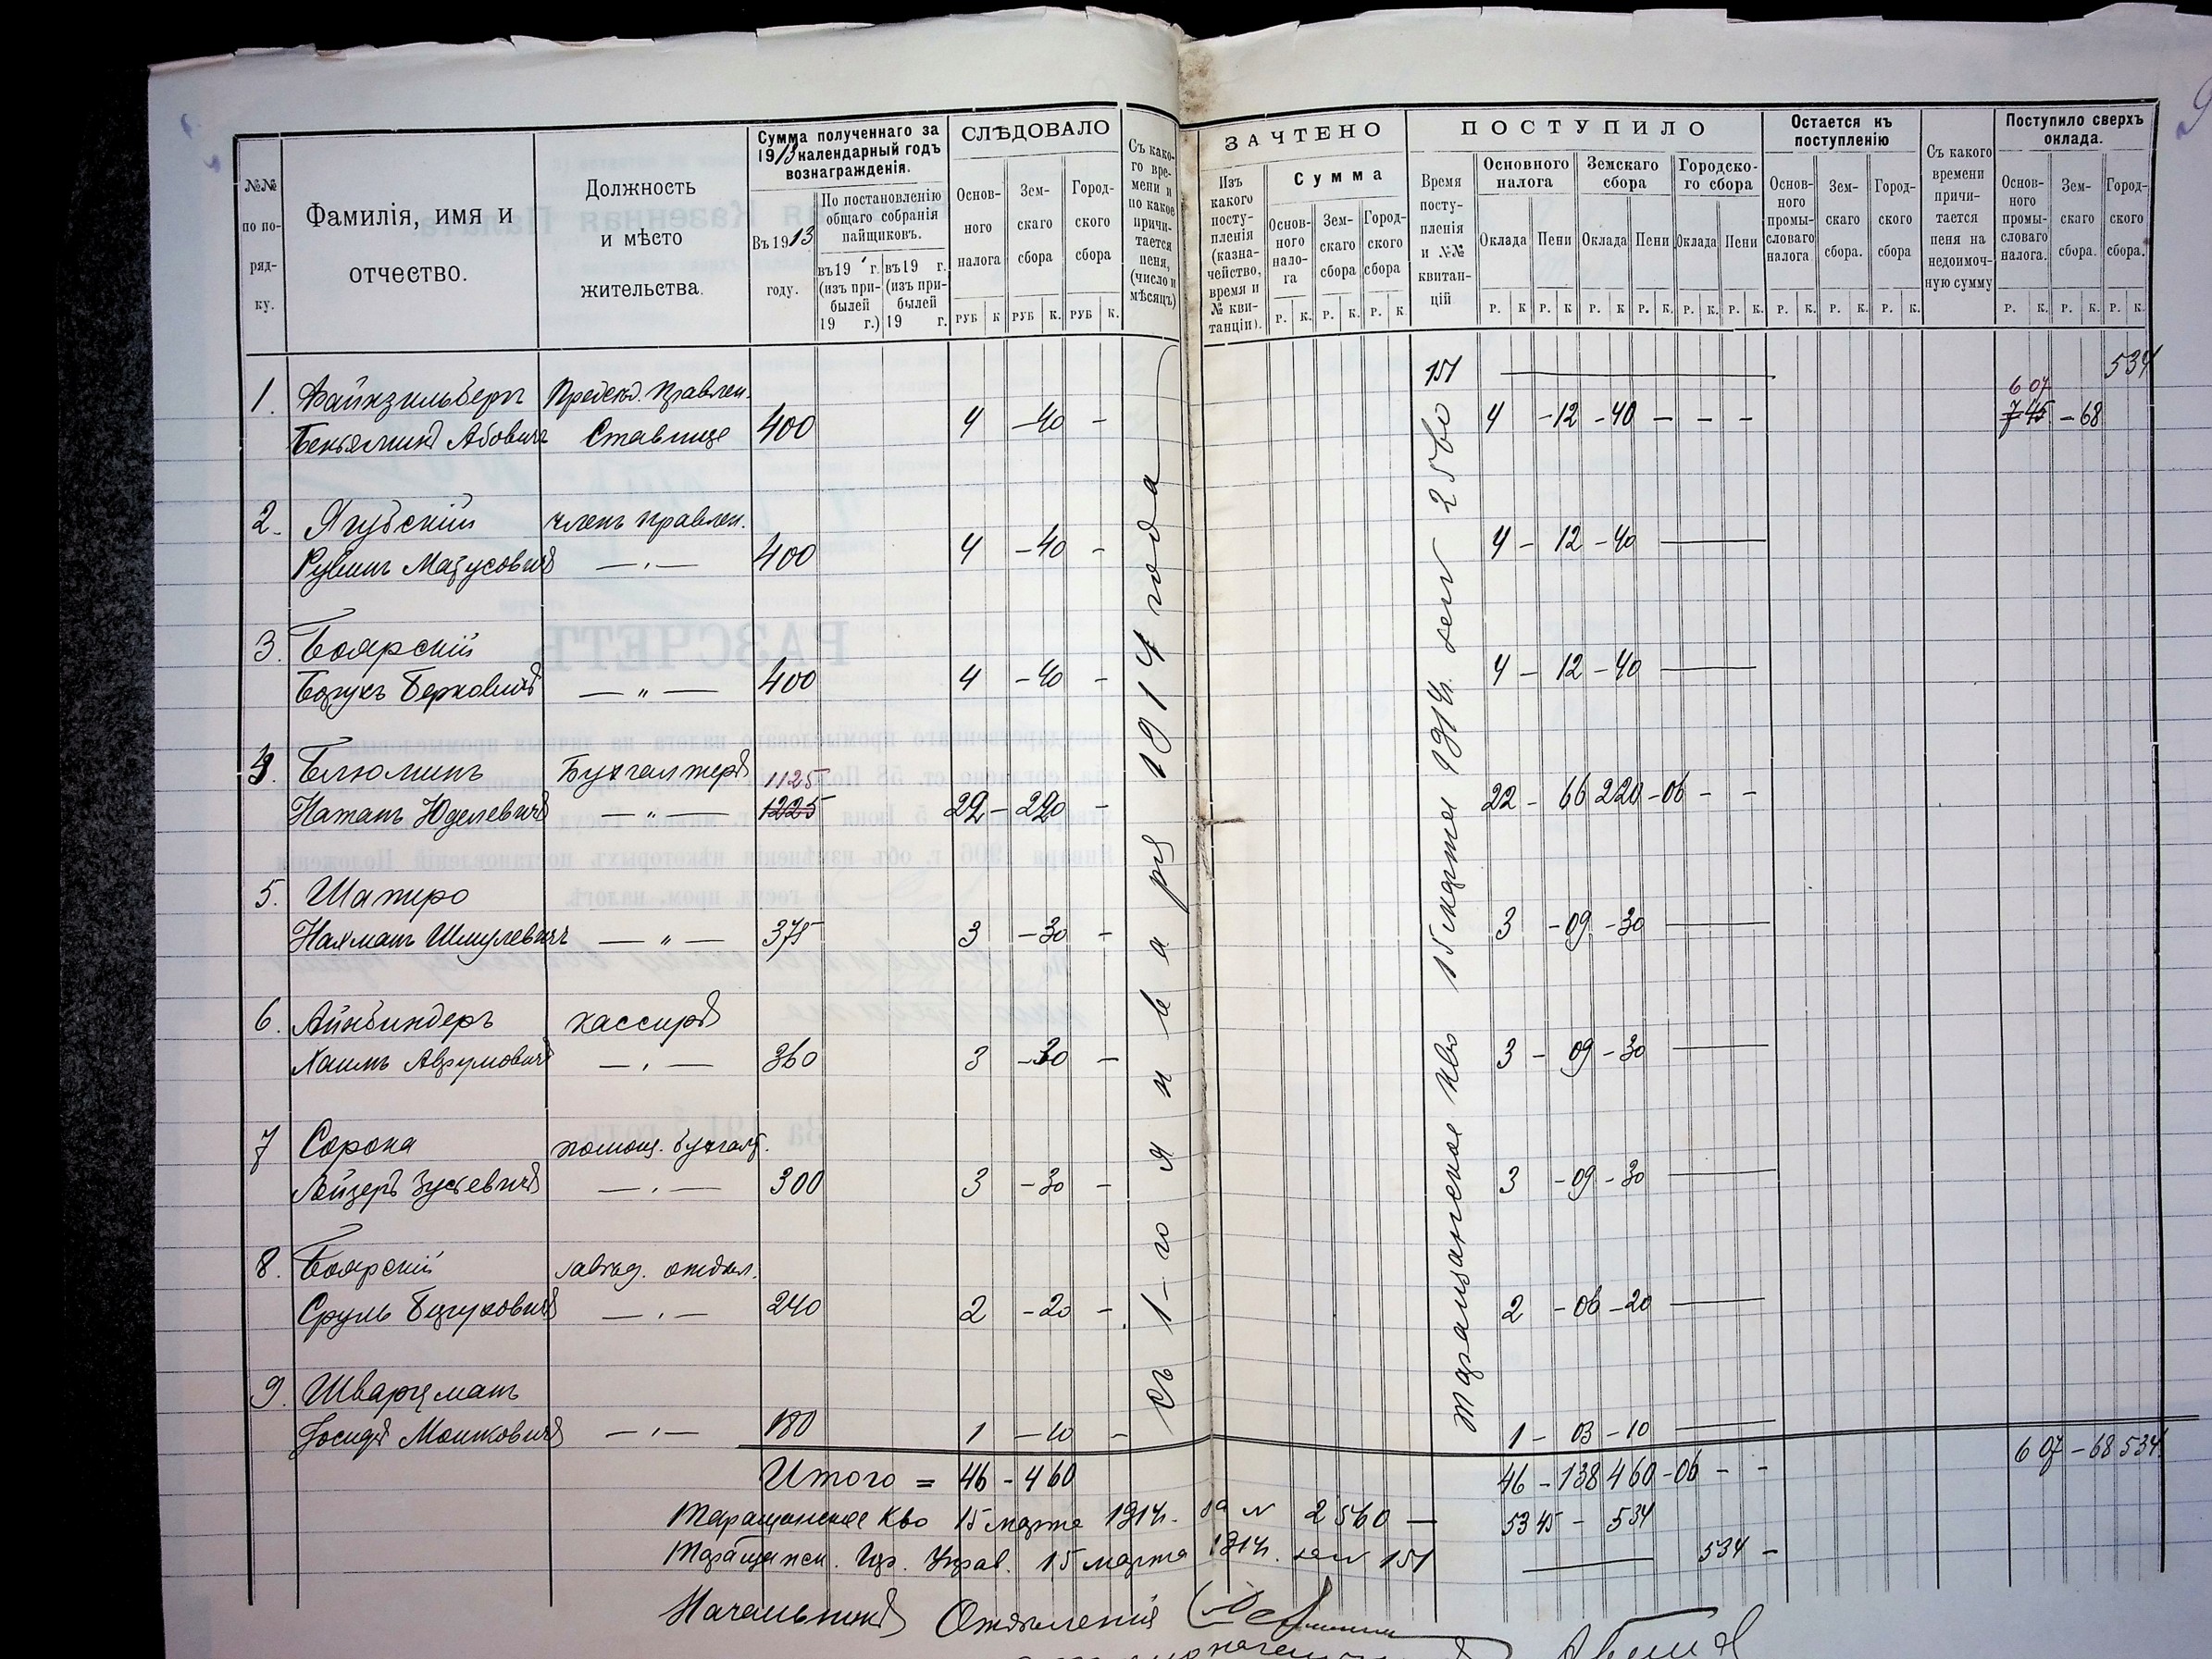 №№ по порядку.
Фамилія, имя и отчество.
Должность и мѣсто жительства.
Сумма полученнаго за 1913 календарный годъ вознагражденія.
Въ 1913 году.
По постановленію общаго собранія пайщиковъ.
въ 19 г. (изъ прибылей 19 г.)
въ 19 г. (изъ прибылей 19 г.
СЛѢДОВАЛО
Основного налога
Земскаго сбора
Городского сбора
РУБ К РУБ К. РУБ К.
Съ какого времени и по какое причитается пеня, (число и мѣсяцъ)
ЗАЧТЕНО
Изъ какого поступленія (казначейство, время и № квитанціи).
Сумма
Основного налога
Земскаго сбора
Городского сбора
Р. К. Р. К. Р. К
ПОСТУПИЛО
Время поступленія и №№ квитанцій
Основного налога
Земскаго сбора
Городского сбора
Оклада Пени Оклада Пени Оклада Пени
Р. К Р. К Р. К Р. К. Р. К. Р. К.
Остается къ поступленію
Основного промысловаго налога
Земскаго сбора.
Городского сбора
Р. К. Р. К. Р. К.
Съ какого времени причитается пеня на недоимочную сумму
Поступило сверхъ оклада.
Основного промысловаго налога.
Земскаго сбора.
Городского сбора.
Р. К. Р. К. Р. К.
съ 1-го января 1914 года
Таращанское кво 15 марта 1914г. за № 2560
151
534
1. Файнзильберг Предсѣд. Правлен.
6 07
Беньяминъ Абовичъ Ставище 400 4 - 40 - 4 - 12 - 40 - - - 7 45 - 68
2. Ягубскій членъ правлен.
Рувинъ Матусовичъ — „ — 400 4 - 40 - 4 - 12 - 40 —
3. Боярскій
Борухъ Берковичъ — „ — 400 4 - 40 - 4 - 12 - 40 —
4. Блюминъ Бухгалтеръ 1125
Натанъ Юделевичъ — „ — 1225 22 - 220 - 22 - 66 220 - 06 - -
5. Шапиро
Нахманъ Шмулевичъ — „ — 375 3 - 30 - 3 - 09 - 30 —
6. Айнбиндеръ кассиръ
Хаимъ Аврумовичъ — „ — 360 3 - 30 - 3 - 09 - 30 —
7 Сорока помощ. бухгалт.
Лейзеръ Зусьевичъ — „ — 300 3 - 30 - 3 - 09 - 30 —
8. Боярскій завѣд. отдѣл.
Сруль Боруховичъ — „ — 240 2 - 20 - 2 - 06 - 20 —
9. Шварцманъ
Іосифъ Мошковичъ — „ — 180 1 - 10 - 1 - 03 - 10 —
Итого = 46 - 4 60 46 - 1 38 4 60 - 06 - - 6 07 - 68 534
Таращанское Кво 15 марта 1914г. за № 2560 — 53 45 - 5 34
Таращанск. Гор. Управ. 15 марта 1914г. за № 151 — 534 -
Начальникъ Отдѣленія